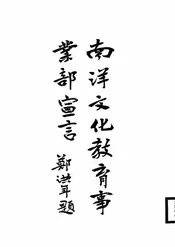 南洋文化教育事
業部宣言
鄭洪年題